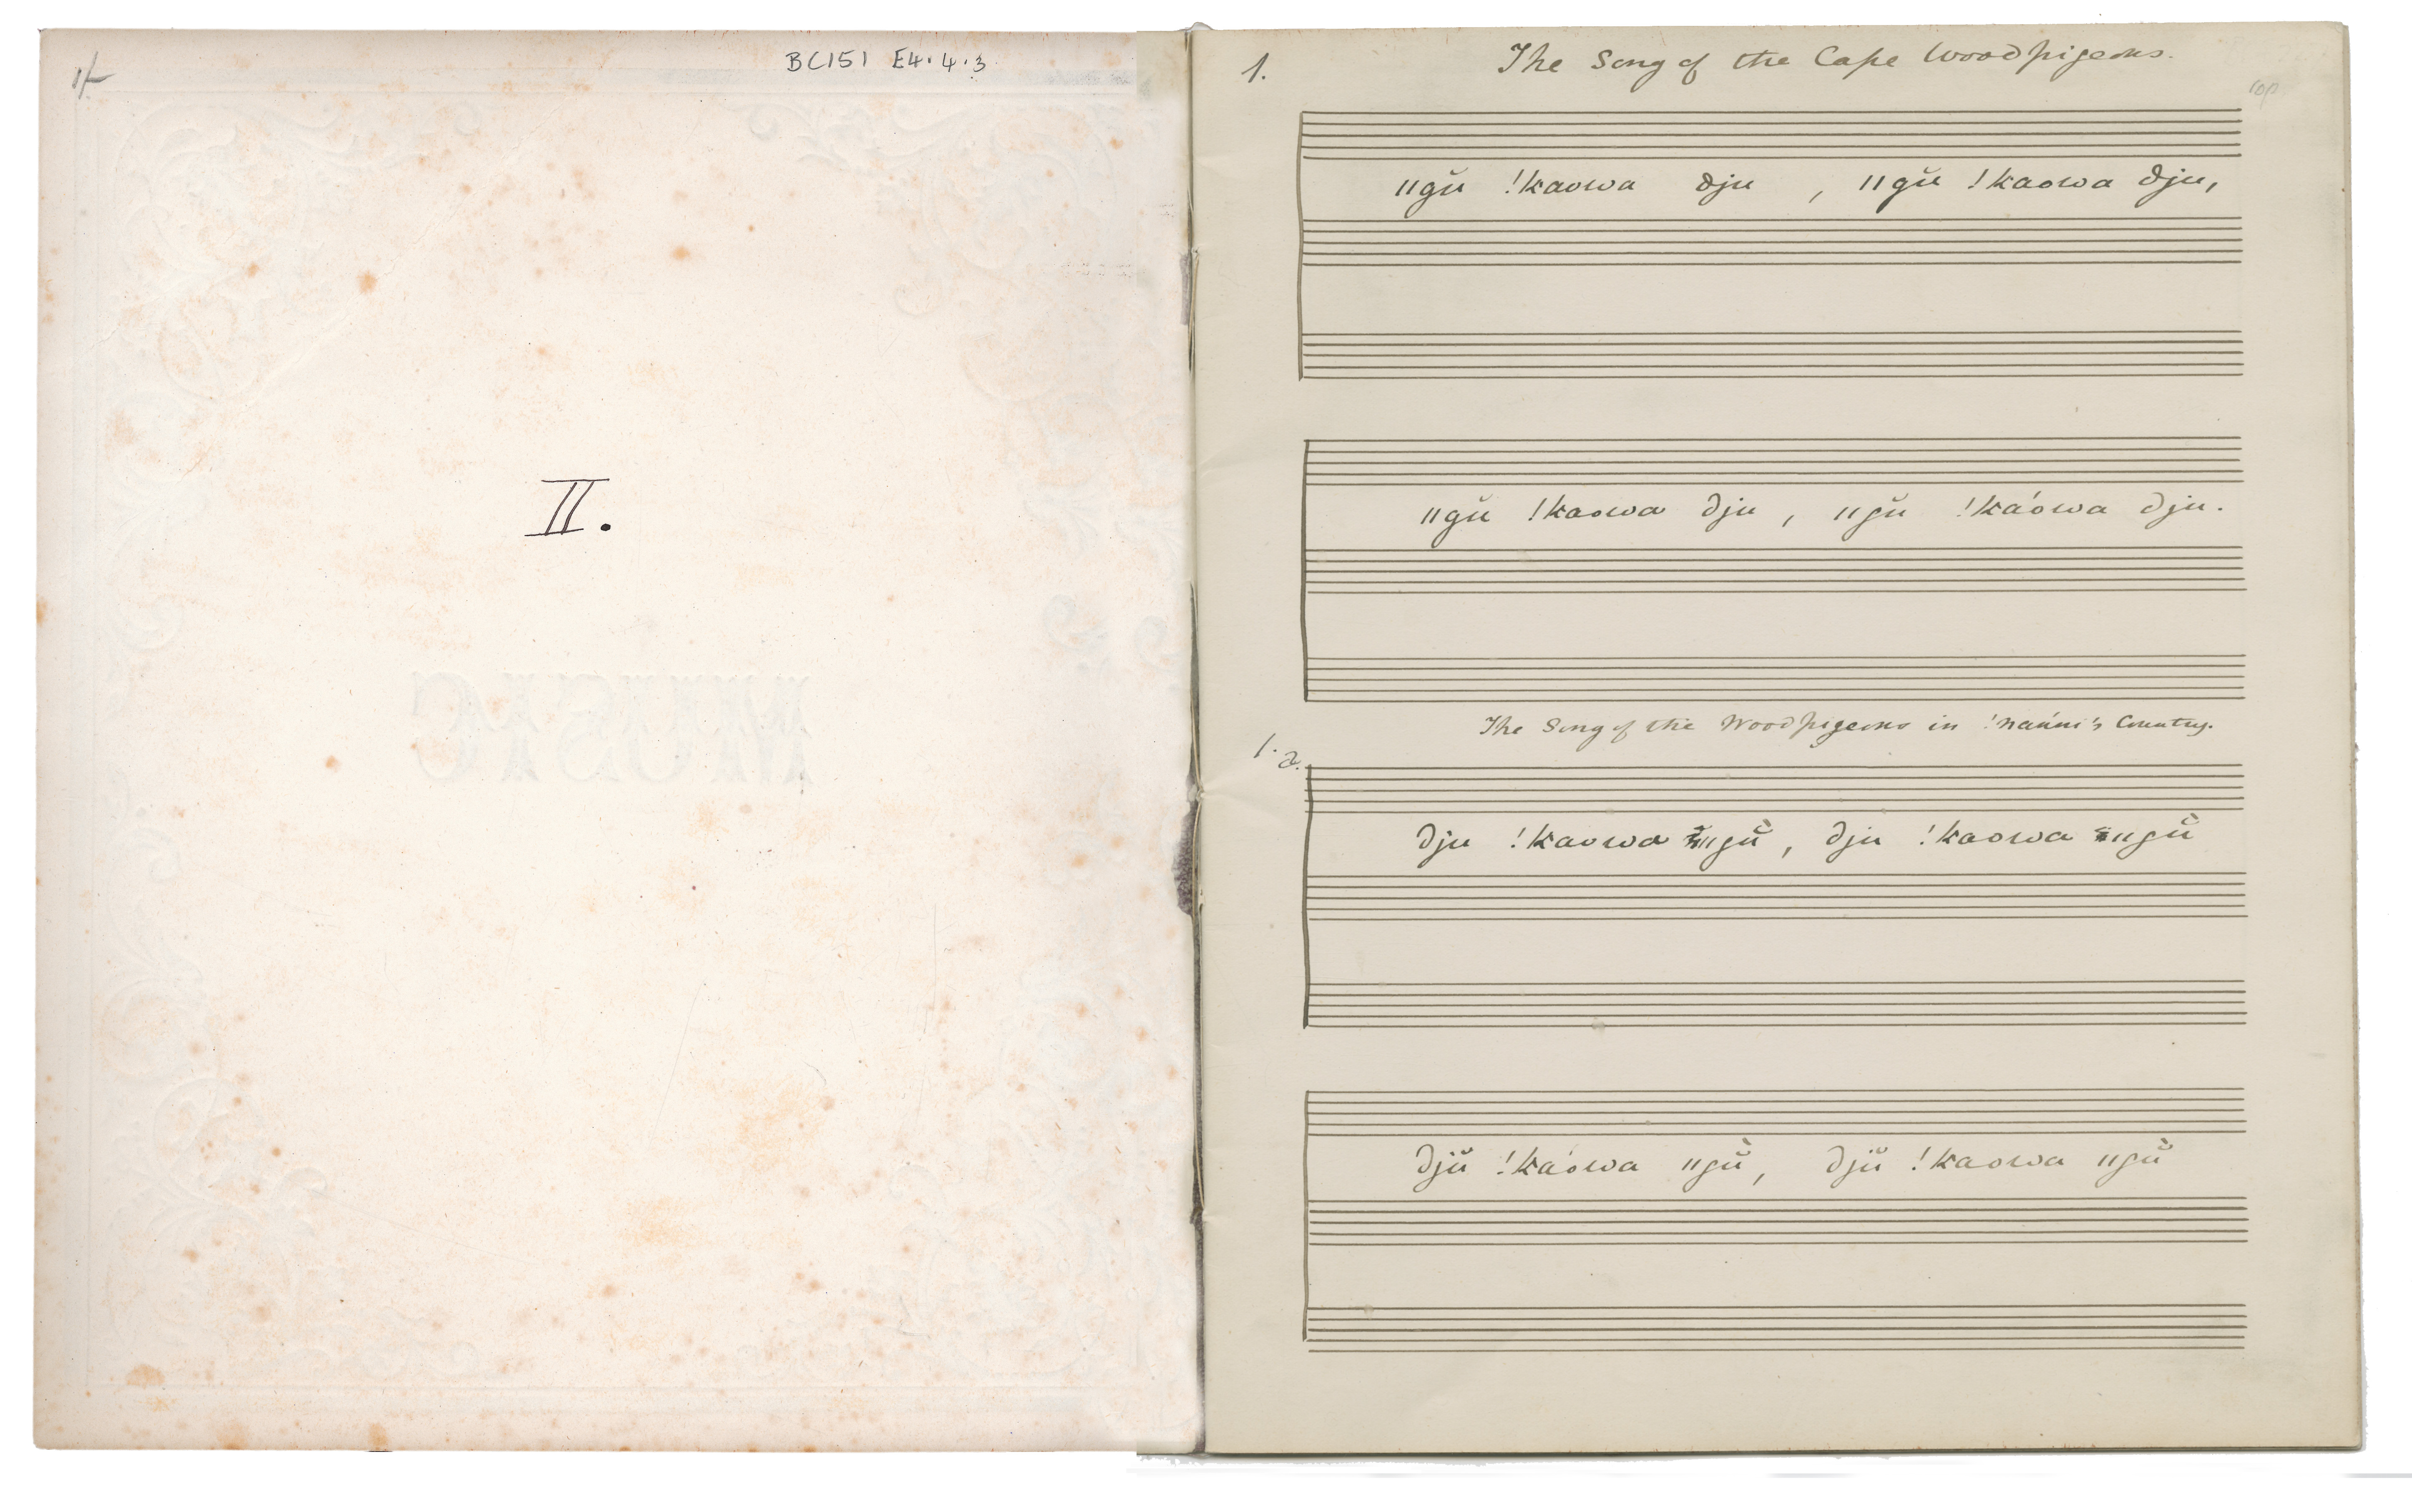 1/-
BC151 E4.4.3
II.
MUSIC
1. The Song of the Cape Woodpigeons.
cop.
ǁgŭ !kaowa dju , ǁgŭ !kaowa dju,
ǁgŭ !kaowa dju , ǁgŭ !káowa dju.
The Song of the Woodpigeons in !nanni's Country.
1. a.
dju !kaowa ǁgŭ̀, dju !kaowa ǁgŭ̀
djŭ !káowa ǁgŭ̀, djŭ !kaowa ǁgŭ̀